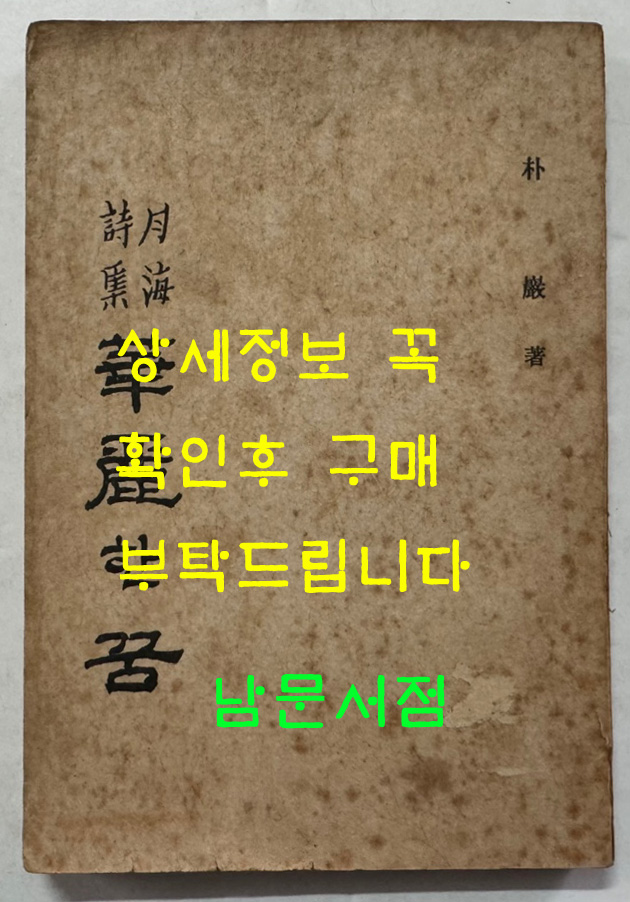 朴巖著
月海
詩集
華麗한
꿈
상세정보 꼭
확인후 구매
부탁드립니다
남문서점